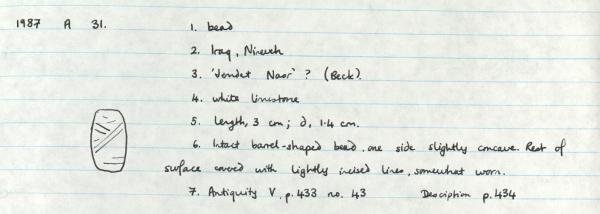 1987 A 31. 1. bead
2. Iraq, Nineveh
3. 'Jemdet Nasr' ? (Beck).
4. white limestone
5. length, 3 cm; d, 1.4 cm.
6. Intact barrel-shaped bead, one side slightly concave. Rest of
surface covered with lightly incised lines, somewhat worn.
7. Antiquity V, p.433 no. 43 Desciption p.434